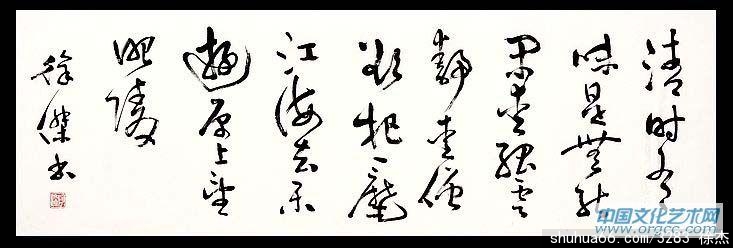 清时有
味是無能
闲爱孤雲
静爱僧
欲把一麾
江海去乐
遊原上望
昭陵
徐傑书
中国文化艺术网
www.orgcc.com
徐杰